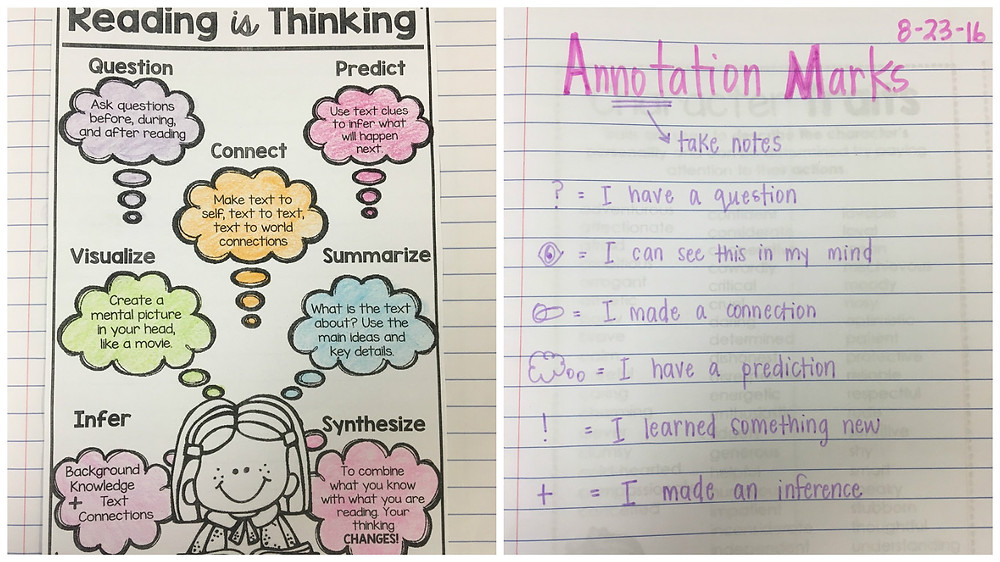 Reading is Thinking
Question
Ask questions
before, during,
and after reading
Predict
Use text clues
to infer what
will happen
next.
Connect
Make text to
self, text to text,
text to world
connections
Visualize
Create a
mental picture
in your head,
like a movie.
Summarize
What is the text
about? Use the
main ideas and
key details.
Infer
Background
Knowledge
+ Text
Connections
Synthesize
To combine
what you know
with what you are
reading. Your
thinking
CHANGES!
8-23-16
Annotation Marks
take notes
? = I have a question
= I can see this in my mind
= I made a connection
= I have a prediction
! = I learned something new
+ = I made an inference